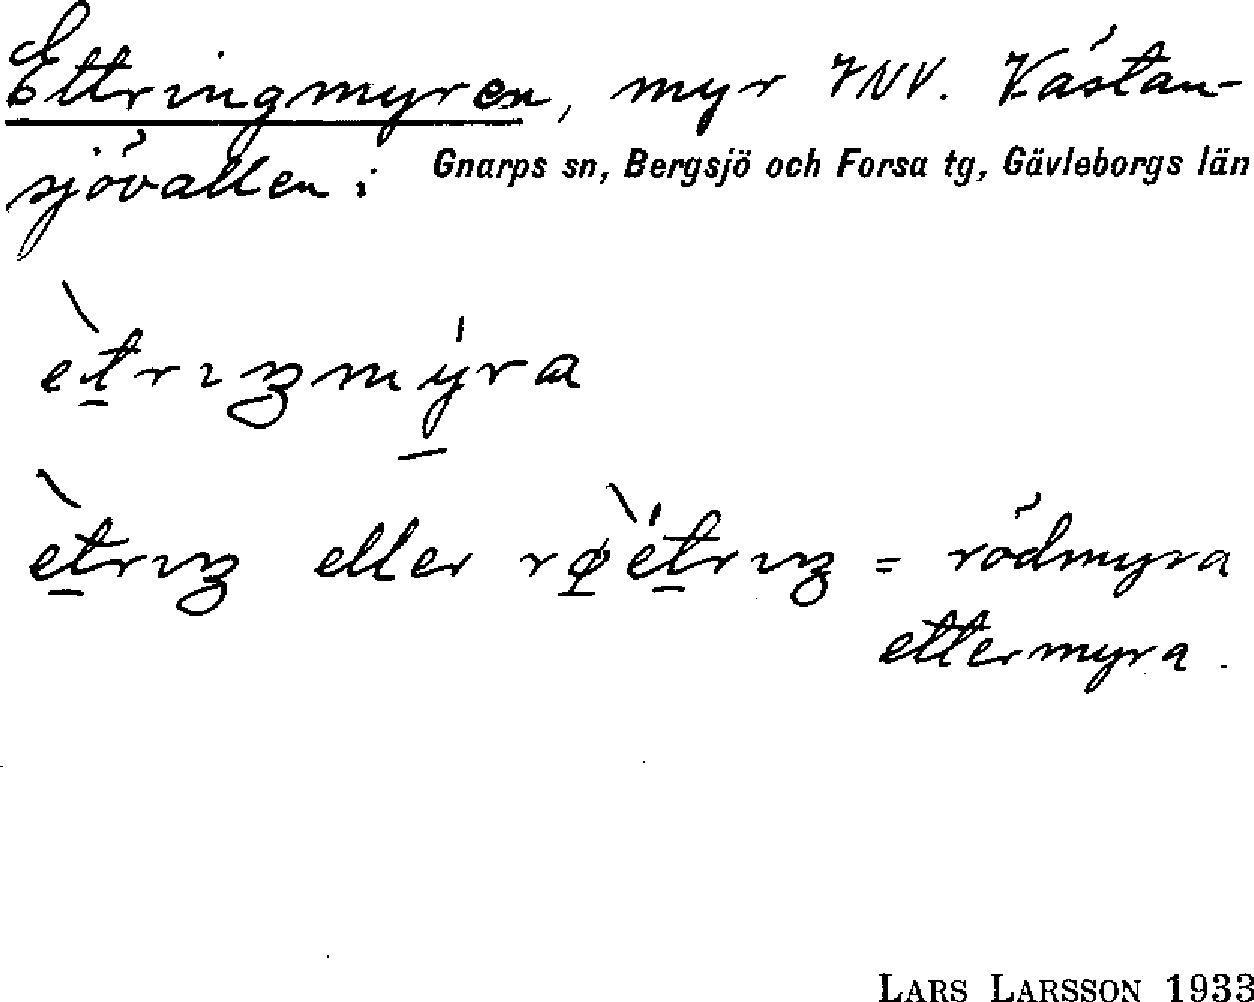 Ettringmyren, myr VNV. Västan-
sjövallen: Gnarps sn, Bergsjö och Forsa tg, Gävleborgs län
è̠trıŋmy̠̍ra
è̠trıŋ eller rø̠̀e̠̍trıŋ = rödmyra
ettermyra.
LARS LARSSON 1933